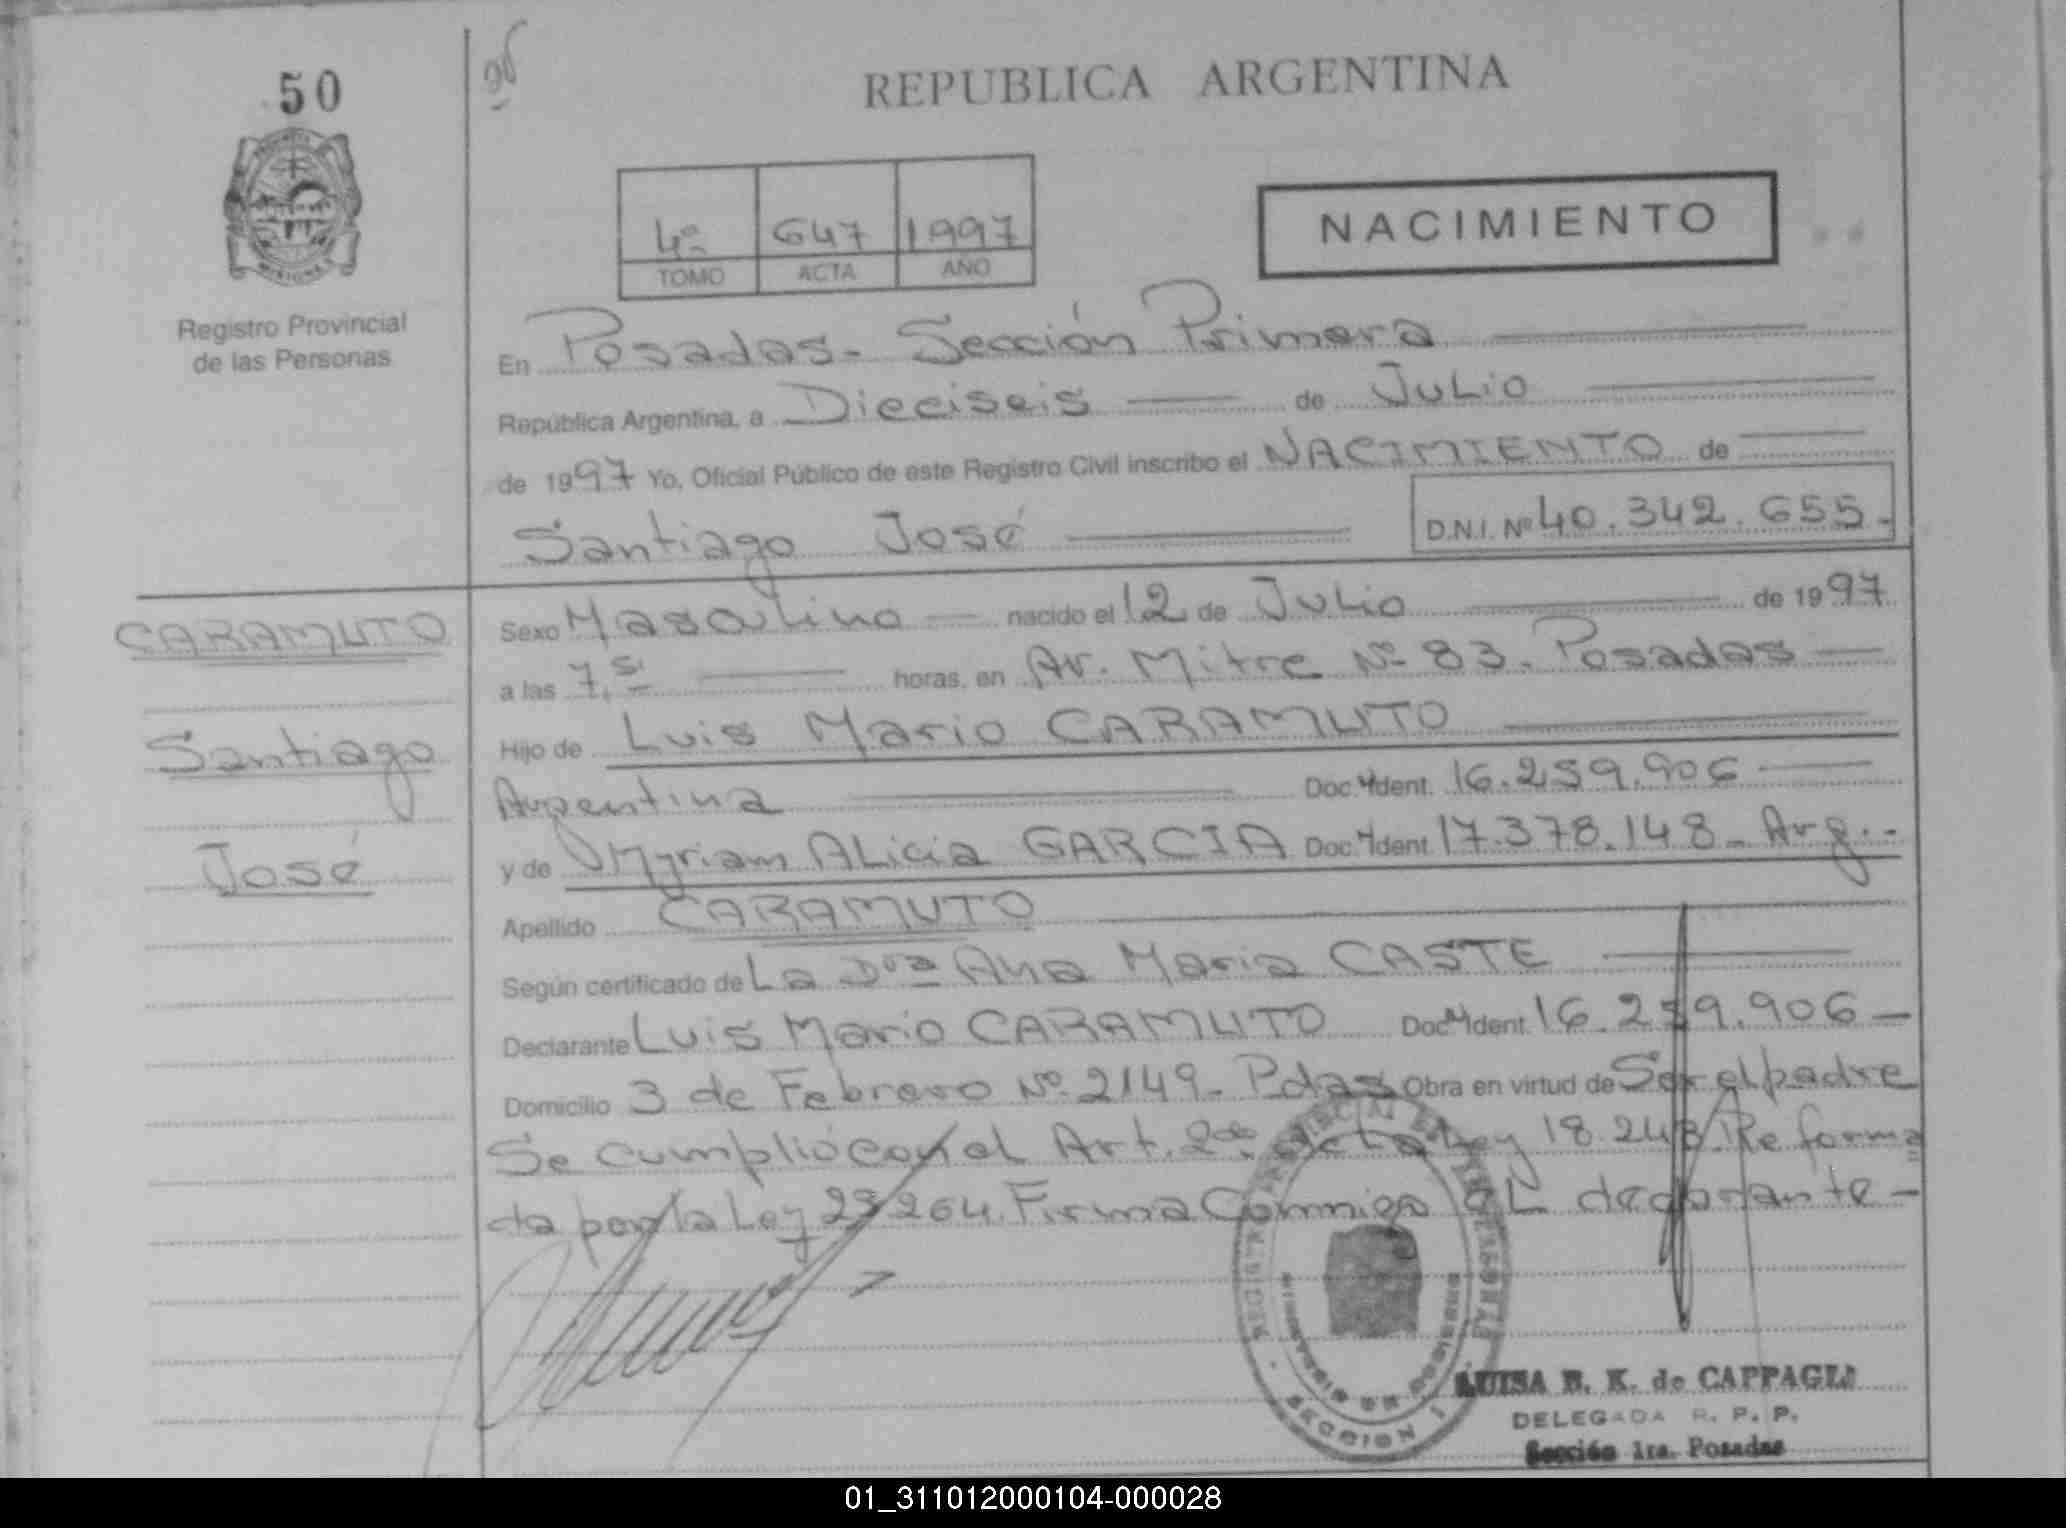 50
98
REPUBLICA ARGENTINA
4º 647 1997
TOMO ACTA AÑO
NACIMIENTO
MISIONES
Registro Provincial
de las Personas
En Posadas. Sección Primera
República Argentina, a Dieciseis de Julio
de 1997 Yo, Oficial Público de este Registro Civil inscribo el NACIMIENTO de
Santiago José D.N.I. Nº 40.342.655.
CARAMUTO
Santiago
José
Sexo Masculino nacido el 12 de Julio de 1997
a las 7,51 horas, en Av. Mitre Nº 83. Posadas
Hijo de Luis Mario CARAMUTO
Argentina Doc. Ident. 16.259.906
y de Myriam ALicia GARCIA Doc. Ident. 17.378.148 - Arg.-
Apellido CARAMUTO
Según certificado de La Dra Ana Maria CASTE
Declarante Luis Mario CARAMUTO Doc. Ident. 16.259.906 -
Domicilio 3 de Febrero Nº 2149. Pdas Obra en virtud de Ser el padre
Se cumplió con el Art. 2do de la Ley 18.248. Reforma
da por la Ley 23264. Firma Conmigo eL declarante -
REGISTRO PROVINCIAL DE LAS PERSONAS
PROVINCIA DE MISIONES
SECCION 1
LUISA B. K. de CAPPAGLI
DELEGADA R. P. P.
Sección 1ra. Posadas
01_311012000104-000028